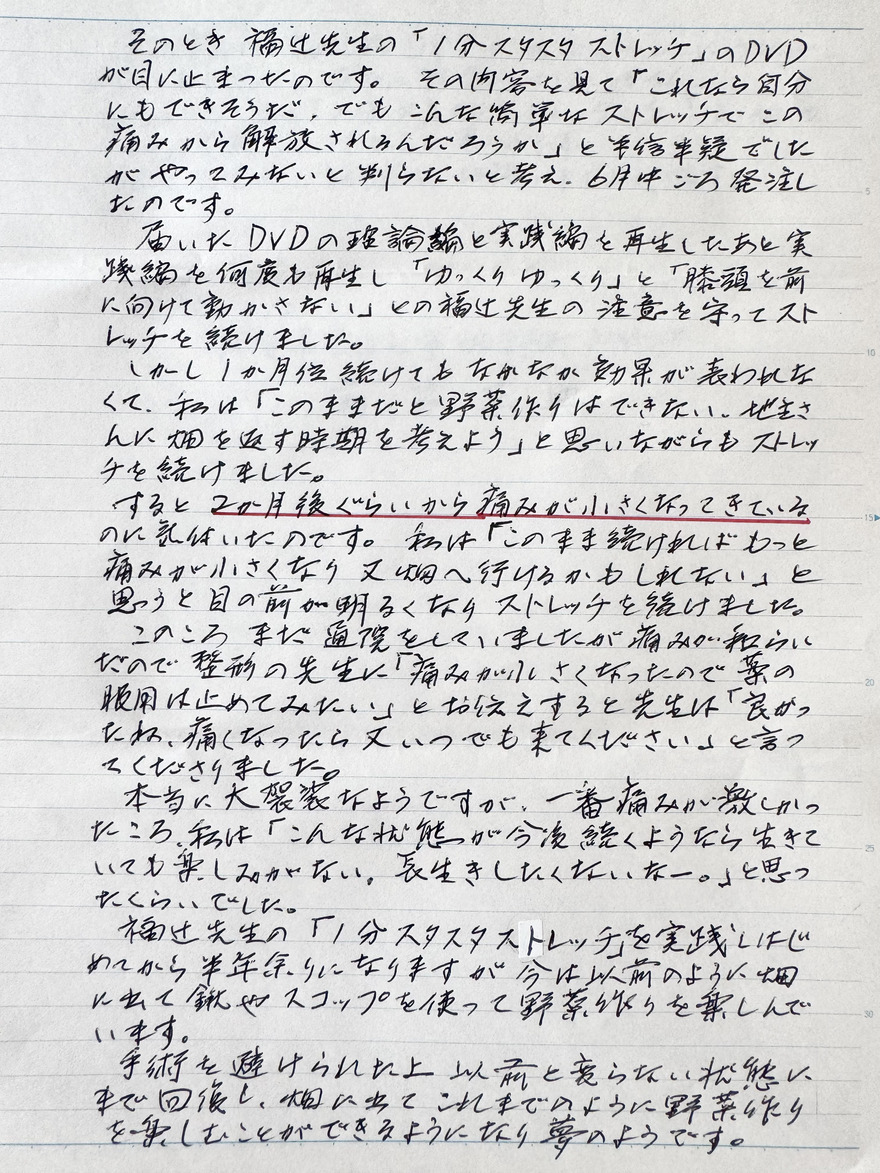 そのとき 福辻先生の「1分 スタスタ ストレッチ」のDVD
が目に止まったのです。 その内容を見て「これなら自分
にもできそうだ、でも こんな簡単な ストレッチで この
痛みから 解放されるんだろうか」と 半信半疑でした
が やってみないと 判らないと 考え、6月中ごろ 発注し
たのです。
届いた DVDの 理論編と 実践編を 再生したあと 実
践編を 何度も 再生し 「ゆっくり ゆっくり」と 「膝頭を前
に向けて 動かさない」との 福辻先生の 注意を 守って スト
レッチを 続けました。
しかし 1か月位 続けても なかなか 効果が 表われな
くて、私は「このままだと 野菜作りは できない、地主さ
んに 畑を 返す 時期を 考えよう」と 思いながらも ストレッ
チを 続けました。
すると 2か月後ぐらいから 痛みが 小さくなってきている
のに 気付いたのです。 私は「このまま 続ければ もっと
痛みが 小さくなり 又 畑へ 行けるかも しれない」と
思うと 目の前が 明るくなり ストレッチを 続けました。
このころ まだ 通院を していましたが 痛みが 和らい
だので 整形の 先生に「痛みが 小さくなったので 薬の
服用は 止めてみたい」と お伝えすると 先生は「良かっ
たね、痛くなったら 又 いつでも 来てください」と 言っ
てくださりました。
本当に 大袈裟なようですが、一番 痛みが 激しかっ
たころ、私は「こんな 状態が 今後 続くようなら 生きて
いても 楽しみがない、長生きしたくないなー。」と 思っ
たくらいでした。
福辻先生の 「1分 スタスタ ストレッチ」を 実践しはじ
めてから 半年余りに なりますが 今は 以前のように 畑
に出て 鍬や スコップを 使って 野菜作りを 楽しんで
います。
手術を 避けられた上 以前と 変らない 状態に
まで 回復し、畑に出て これまでのように 野菜作り
を 楽しむことが できるようになり 夢のようです。